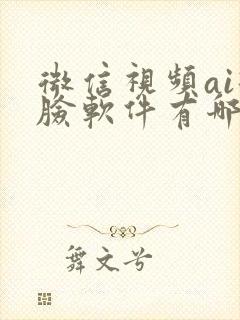 微信視頻ai
臉軟件有哪
舞文兮